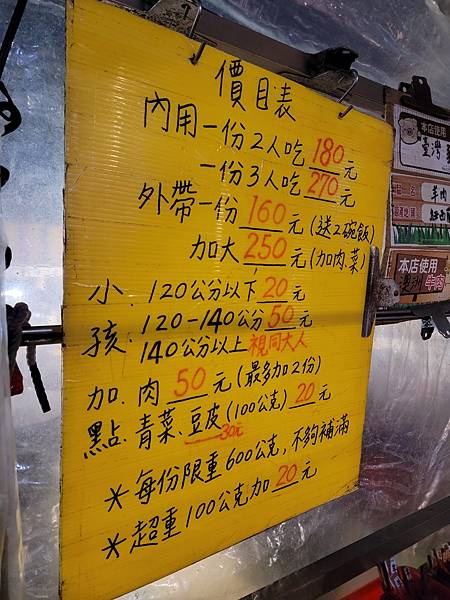 價目表
內用一份2人吃180元
一份3人吃270元
外帶一份160元(送2碗飯)
加大250元(加肉.菜)
小. 120公分以下20元
孩. 120-140公分50元
140公分以上視同大人
加. 肉50元(最多加2份)
點. 青菜.豆皮(100公克)20元
30元
*每份限重600公克,不夠補滿
*超重100公克加20元
本店使用
臺灣
羊肉
紐西
本店使用
牛肉